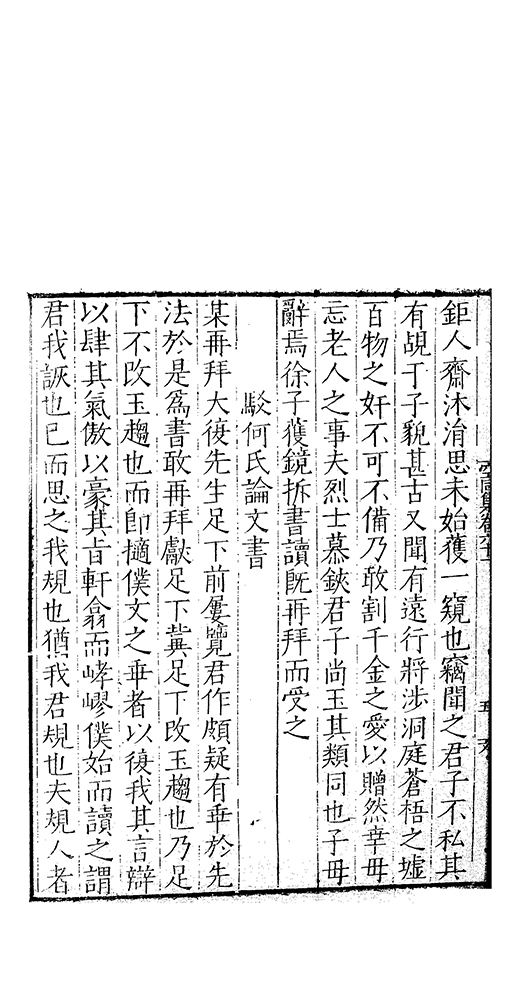 鉅人齋沐涓思未始獲一窺也竊聞之君子不私其
有覘于子貌甚古又聞有遠行將涉洞庭蒼梧之墟
百物之奸不可不備乃敢割千金之愛以贈然幸毋
忘老人之事夫烈士慕鋏君子尚玉其類同也子毋
辭焉徐子獲鏡拆書讀旣再拜而受之
駁何氏論文書
某再拜大復先生足下前屢覽君作頗疑有乖於先
法於是爲書敢再拜獻足下冀足下改玉趨也乃足
下不改玉趨也而卽擿僕文之乖者以復我其言辯
以肆其氣傲以豪其旨軒翕而嵺僕始而讀之謂
君我詼也已而思之我規也猶我君規也夫規人者
空同集卷六十二
五